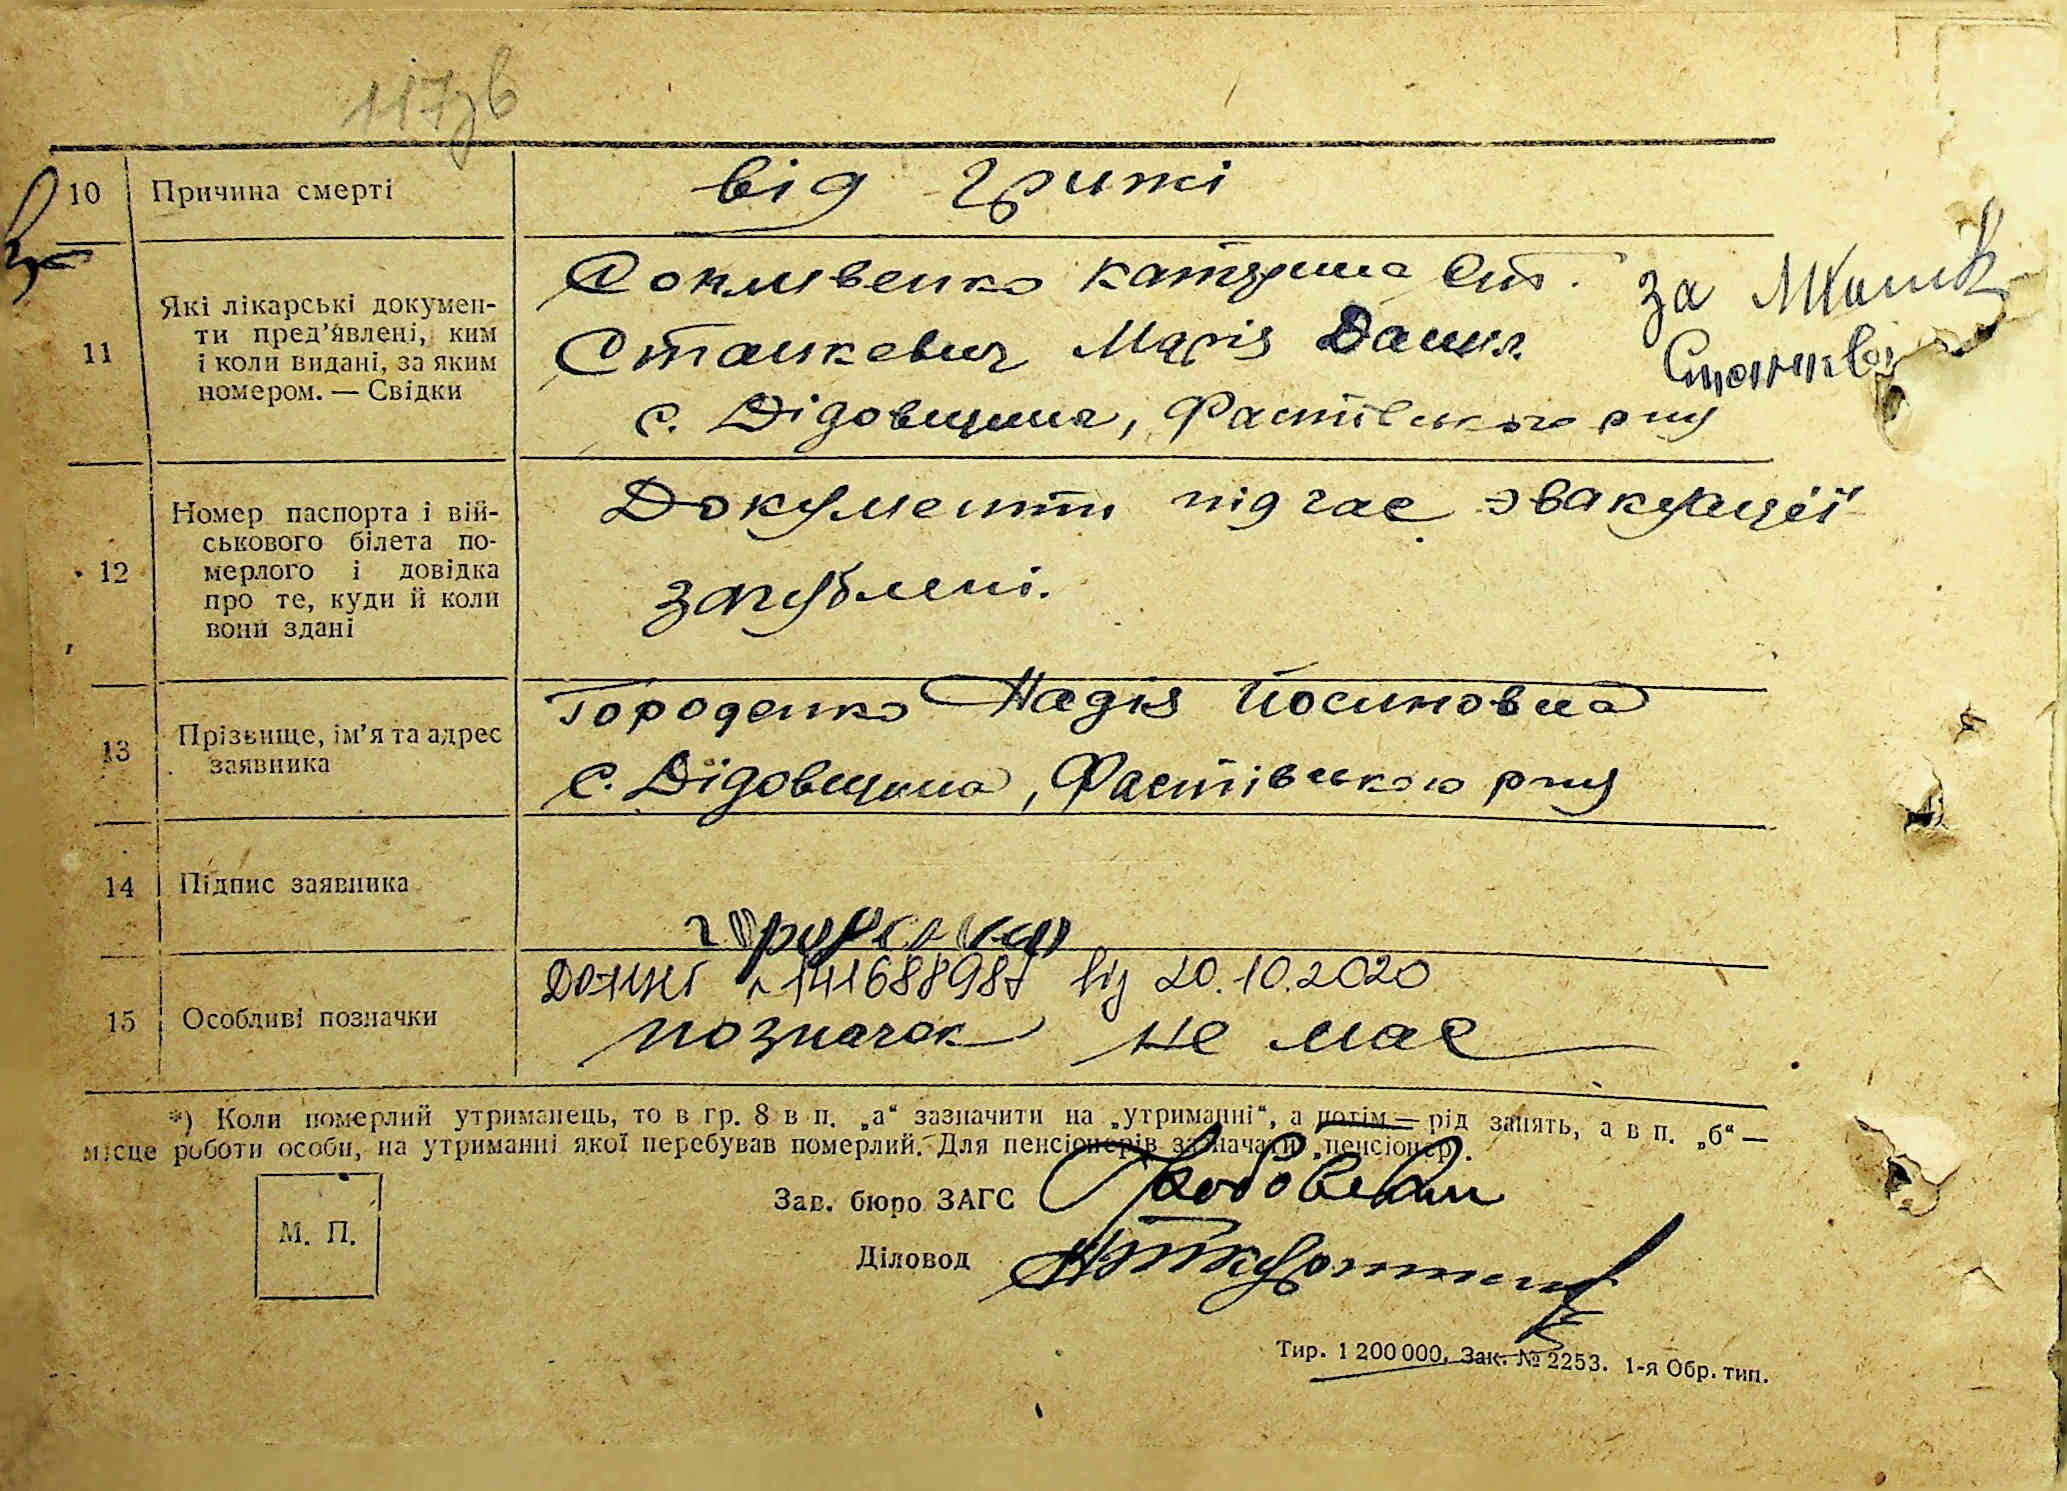 117зв
10 Причина смерті від грижі
11 Які лікарські докумен-
ти пред'явлені, ким
і коли видані, за яким
номером. — Свідки
Катерина
Станкевич Марія Данил
с. Дідовщина, Фастівського р-ну
за
12 Номер паспорта і вій-
ськового білета по-
мерлого і довідка
про те, куди й коли
вони здані
Документи під час эвакуації
загублені.
13 Прізвище, ім'я та адрес
заявника
Городенко Надія Йосиповна
с. Дідовщина, Фастівського р-ну
14 Підпис заявника
15 Особливі позначки
від 20.10.2020
позначок не має
*) Коли померлий утриманець, то в гр. 8 в п. „а“ зазначити на „утриманні“, а потім — рід занять, а в п. „б“ —
місце роботи особи, на утриманні якої перебував померлий. Для пенсіонерів зазначати „пенсіонер“.
М. П.
Зав. бюро ЗАГС
Діловод
Тир. 1 200 000. Зак. № 2253. 1-я Обр. тип.